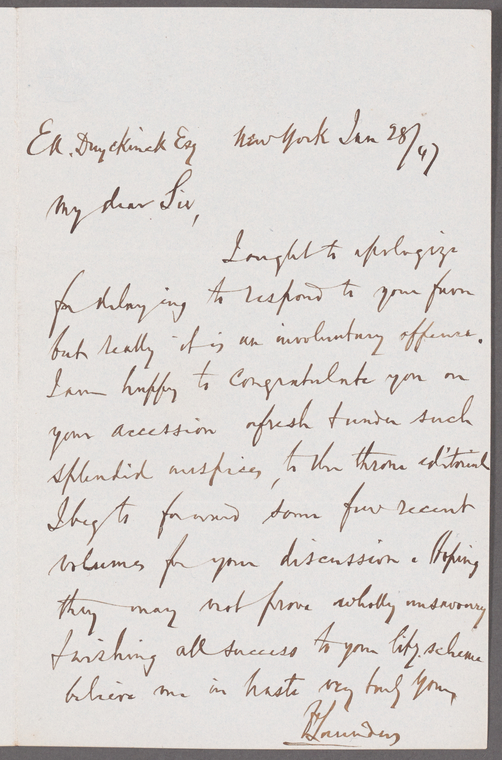 EA. Duyckinck Esq New York Jan 28/47
My dear Sir,
I ought to apologize
for delaying to respond to your favor
but really it is an involuntary offence.
I am happy to congratulate you on
your accession afresh & under such
splendid auspices, to the throne editorial
I beg to forward some few recent
volumes for your discussion & Hoping
they may not prove wholly unsavoury
& wishing all success to your lity. scheme
believe me in haste very truly yours
Saunders